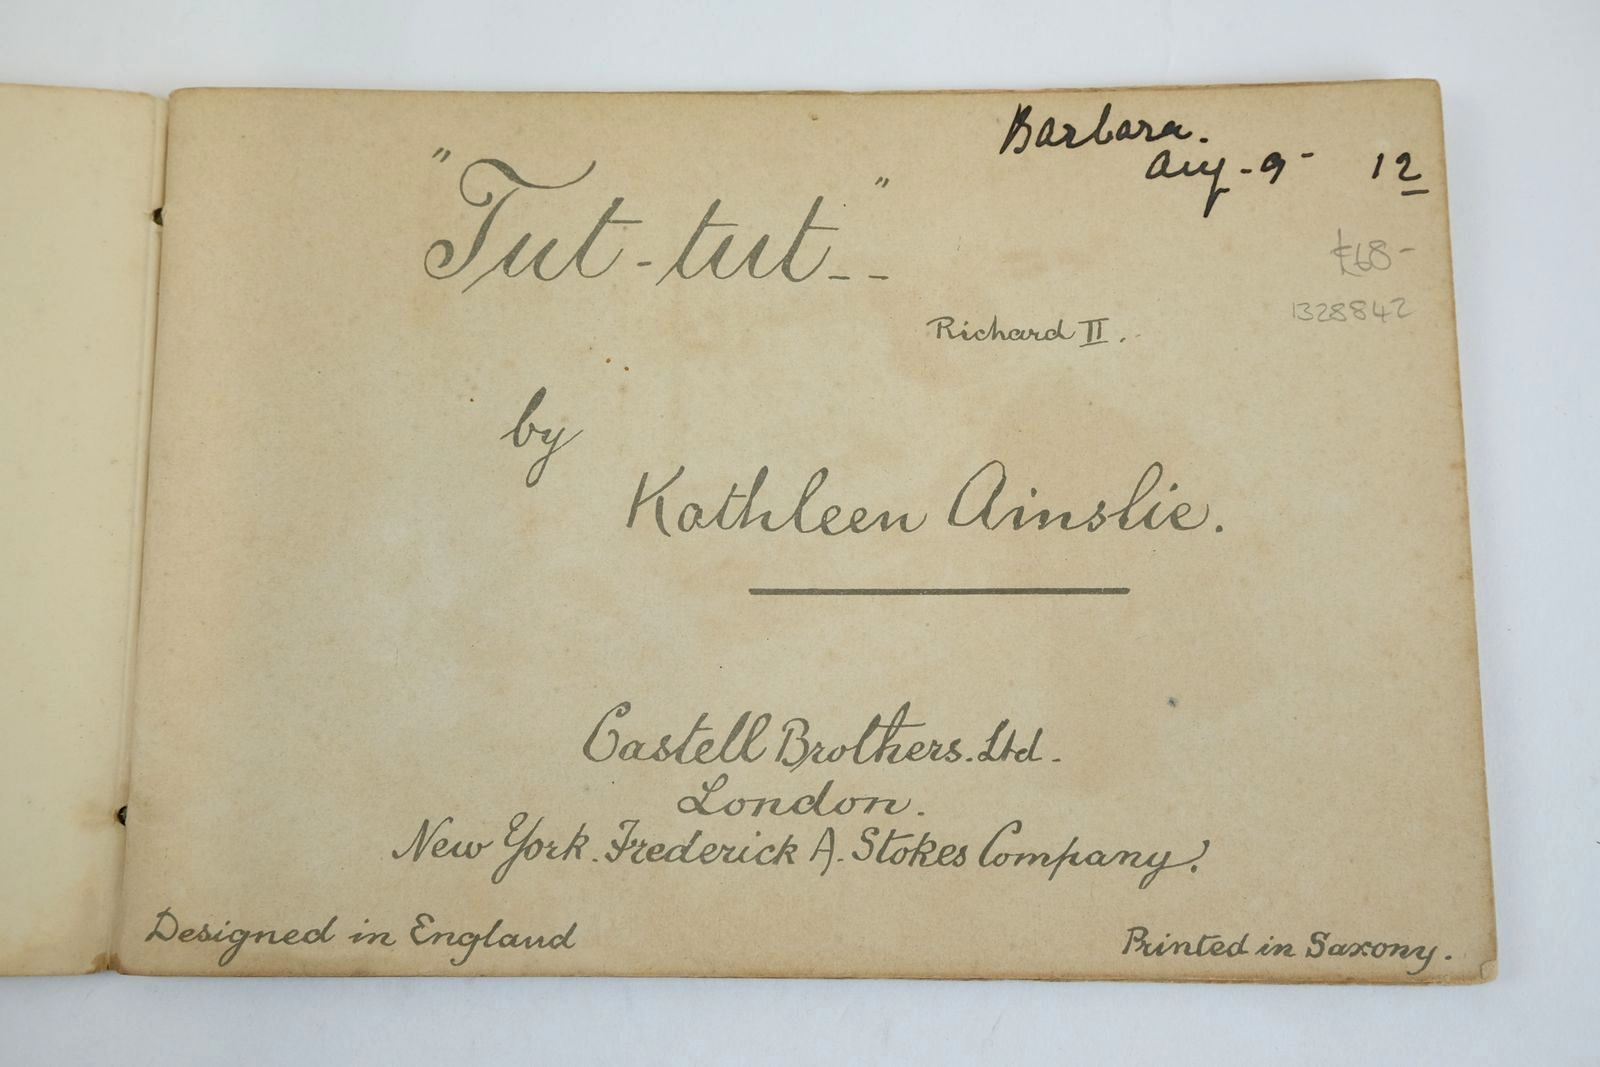 Barbara.
Aug - 9 - 12
"Tut-tut--"
£68-
1328842
Richard II.
by
Kathleen Ainslie.
Castell Brothers. Ltd.
London.
New York. Frederick A. Stokes Company.
Designed in England
Printed in Saxony.